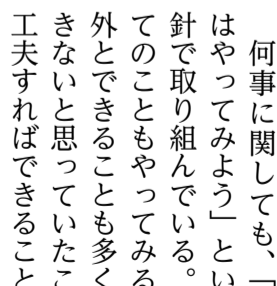 何事に関しても、「
はやってみよう」とい
針で取り組んでいる。
てのこともやってみる
外とできることも多く
きないと思っていたこ
工夫すればできること